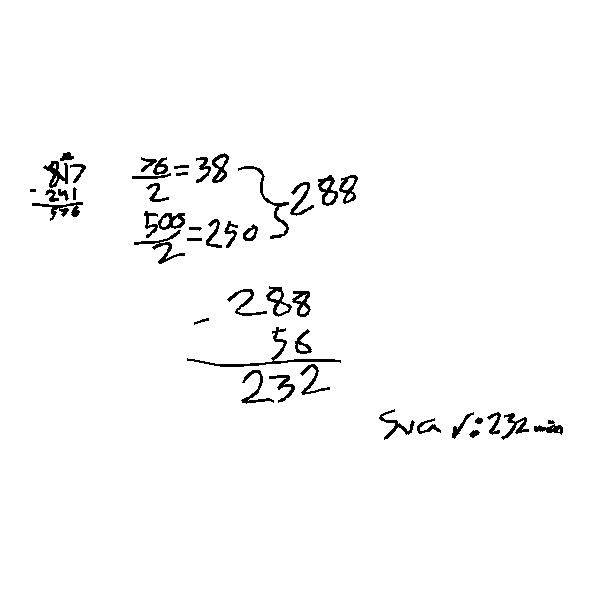 817
- 241
576
76/2 = 38
500/2 = 250
} 288
- 288
56
232
Svar: 232 min